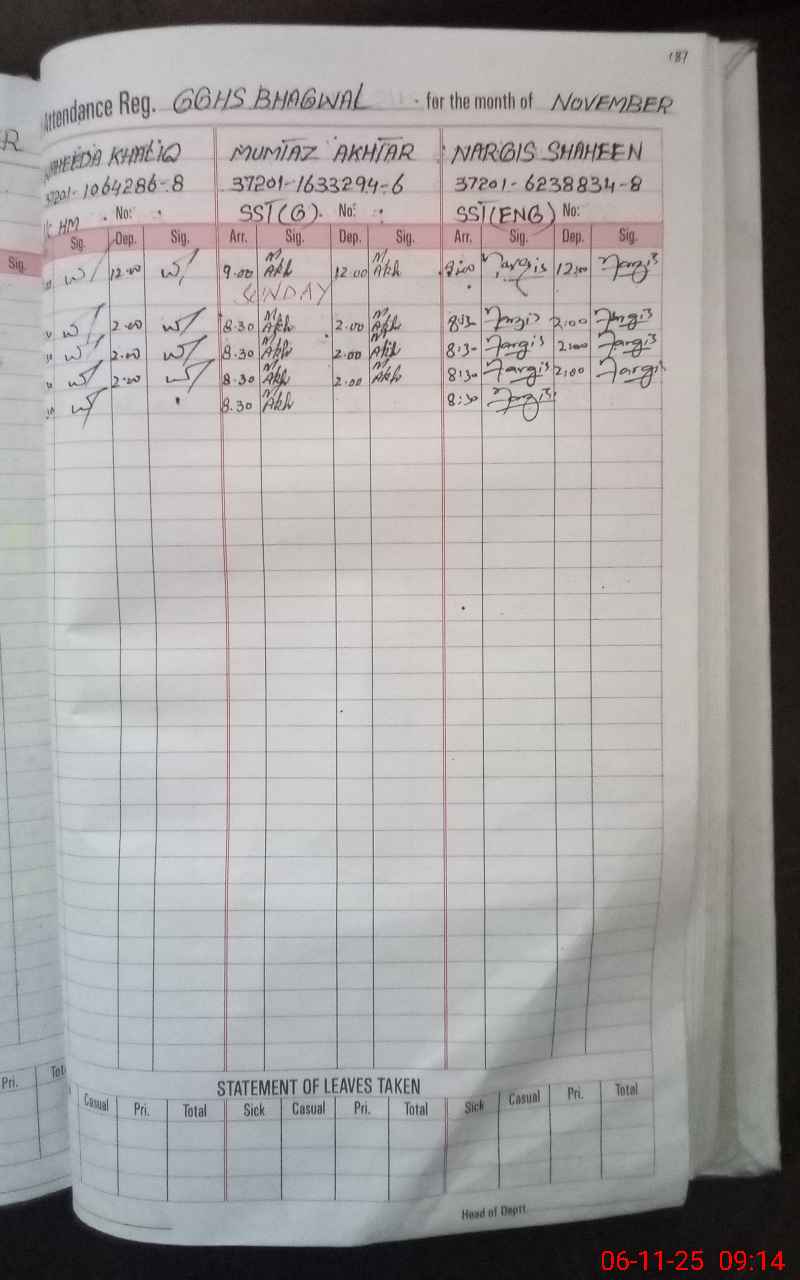 187
Attendance Reg. GGHS BHAGWAL for the month of NOVEMBER
ER
KHALIQ MUMTAZ AKHTAR NARGIS SHAHEEN
37201-1064286-8 37201-1633294-6 37201-6238834-8
HM No: SST(G). No: SST(ENG) No:
Sig. Sig. Dep. Sig. Arr. Sig. Dep. Sig. Arr. Sig. Dep. Sig.
12.00 9.00 M Akh 12.00 M Akh Nargis 12:00 Nargis
SUNDAY
2.00 8.30 M Akh 2.00 M Akh 8:30 Nargis 2:00 Nargis
2.00 8.30 M Akh 2.00 M Akh 8:30 Nargis 2:00 Nargis
2.00 8.30 M Akh 2.00 M Akh 8:30 Nargis 2:00 Nargis
8.30 M Akh 8:30 Nargis
STATEMENT OF LEAVES TAKEN
Pri. Casual Pri. Total Sick Casual Pri. Total Sick Casual Pri. Total
Head of Deptt.
06-11-25 09:14